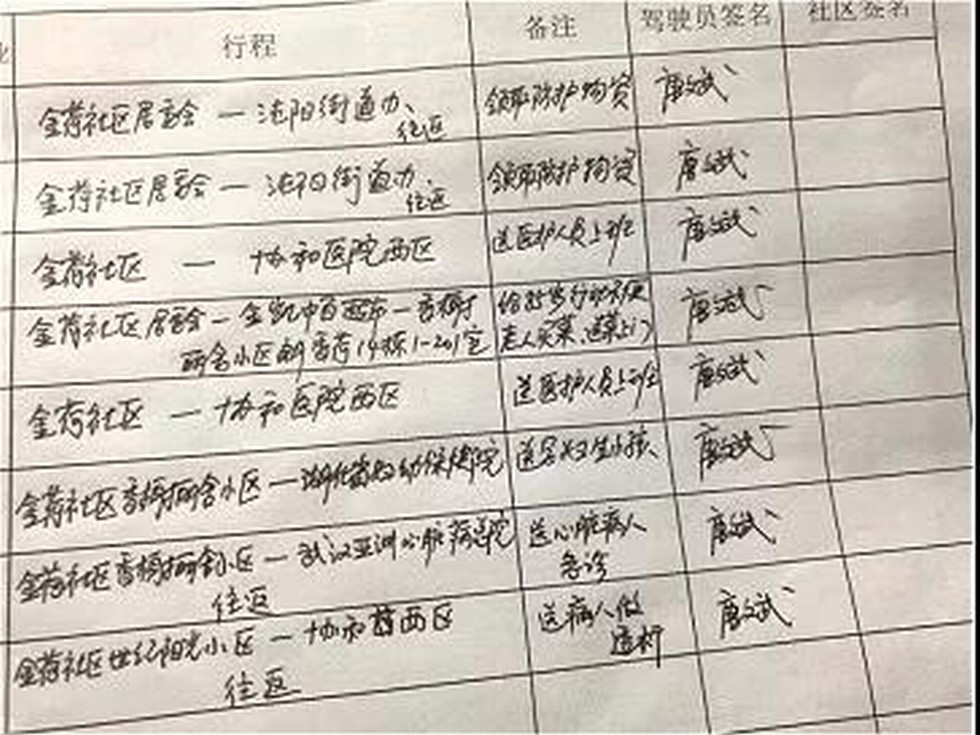 行程 备注 驾驶员签名 社区签名
金荷社区居委会 — 沌阳街道办、 领取防护物资 唐文斌
往返
金荷社区居委会 — 沌阳街道办、 领取防护物资 唐文斌
往返
金荷社区 — 协和医院西区 送医护人员上班 唐文斌
金荷社区居委会 — 金凯中百超市 — 香榭 给85岁行动不便 唐文斌
丽舍小区 14栋1-201室 老人买菜、送菜上门
金荷社区 — 协和医院西区 送医护人员上班 唐文斌
金荷社区香榭丽舍小区 — 湖北省妇幼保健院 送孕妇生小孩、 唐文斌
金荷社区香榭丽舍小区 — 武汉亚洲心脏病医院 送心脏病人 唐文斌
往返 急诊
金荷社区世纪阳光小区 — 协和 西区 送病人做 唐文斌
往返 透析